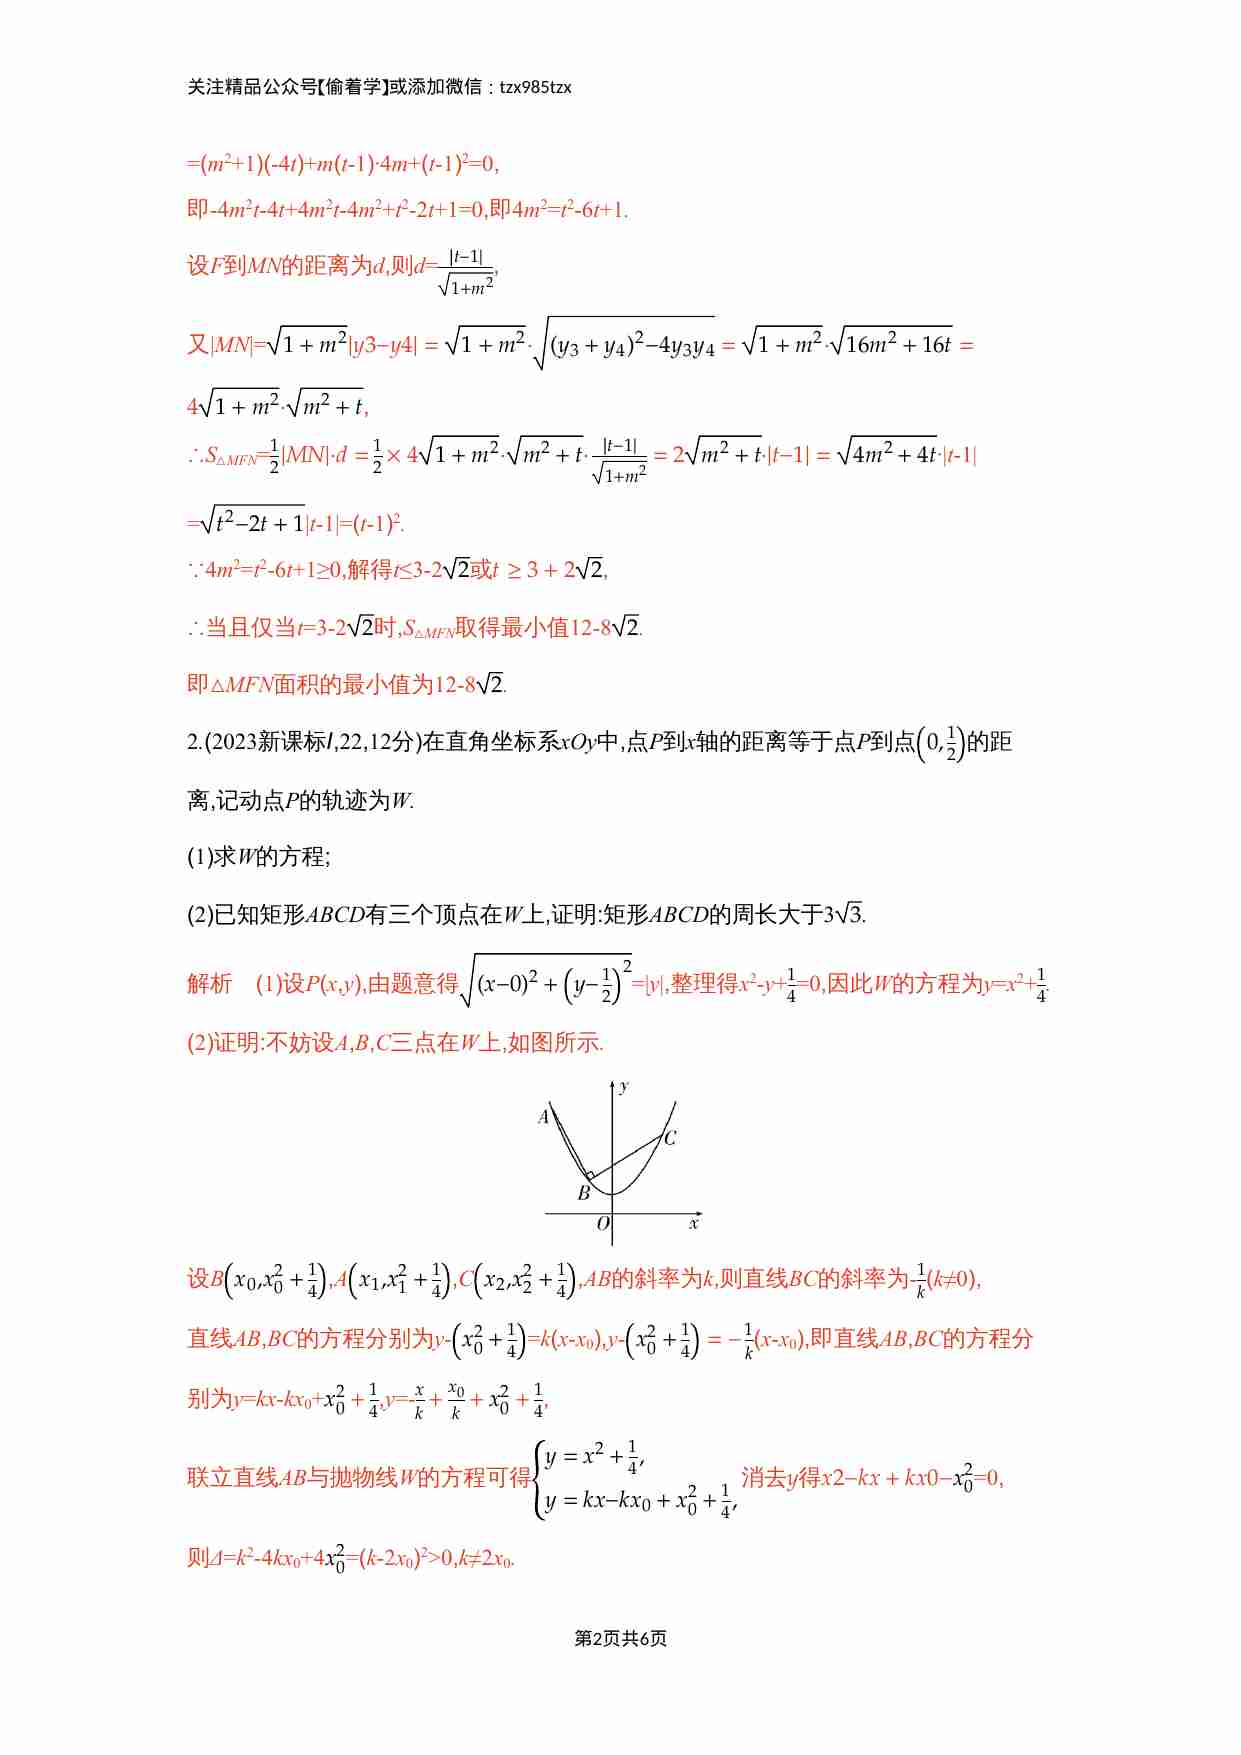 关注精品公众号【偷着学】或添加微信：tzx985tzx
=(m²+1)(-4t)+m(t-1)·4m+(t-1)²=0,
即-4m²t-4t+4m²t-4m²+t²-2t+1=0,即4m²=t²-6t+1.
设F到MN的距离为d,则d=|t−1|/√(1+m²),
又|MN|=√(1+m²)|y3−y4| = √(1+m²)·√((y₃+y₄)²−4y₃y₄) = √(1+m²)·√(16m²+16t) =
4√(1+m²)·√(m²+t),
∴S△MFN=1/2|MN|·d = 1/2 × 4√(1+m²)·√(m²+t)·|t−1|/√(1+m²) = 2√(m²+t)·|t−1| = √(4m²+4t)·|t-1|
=√(t²−2t+1)|t-1|=(t-1)².
∵4m²=t²-6t+1≥0,解得t≤3-2√2或t ≥ 3 + 2√2,
∴当且仅当t=3-2√2时,S△MFN取得最小值12-8√2.
即△MFN面积的最小值为12-8√2.
2.(2023新课标Ⅰ,22,12分)在直角坐标系xOy中,点P到x轴的距离等于点P到点(0,1/2)的距
离,记动点P的轨迹为W.
(1)求W的方程;
(2)已知矩形ABCD有三个顶点在W上,证明:矩形ABCD的周长大于3√3.
解析　(1)设P(x,y),由题意得√((x−0)²+(y−1/2)²)=|y|,整理得x²-y+1/4=0,因此W的方程为y=x²+1/4.
(2)证明:不妨设A,B,C三点在W上,如图所示.
y
A
C
B
O
x
设B(x₀,x₀²+1/4),A(x₁,x₁²+1/4),C(x₂,x₂²+1/4),AB的斜率为k,则直线BC的斜率为-1/k(k≠0),
直线AB,BC的方程分别为y-(x₀²+1/4)=k(x-x₀),y-(x₀²+1/4) = −1/k(x-x₀),即直线AB,BC的方程分
别为y=kx-kx₀+x₀²+1/4,y=-x/k+x₀/k+x₀²+1/4,
联立直线AB与抛物线W的方程可得{y=x²+1/4, y=kx−kx₀+x₀²+1/4, 消去y得x2−kx + kx0−x₀²=0,
则Δ=k²-4kx₀+4x₀²=(k-2x₀)²>0,k≠2x₀.
第2页共6页